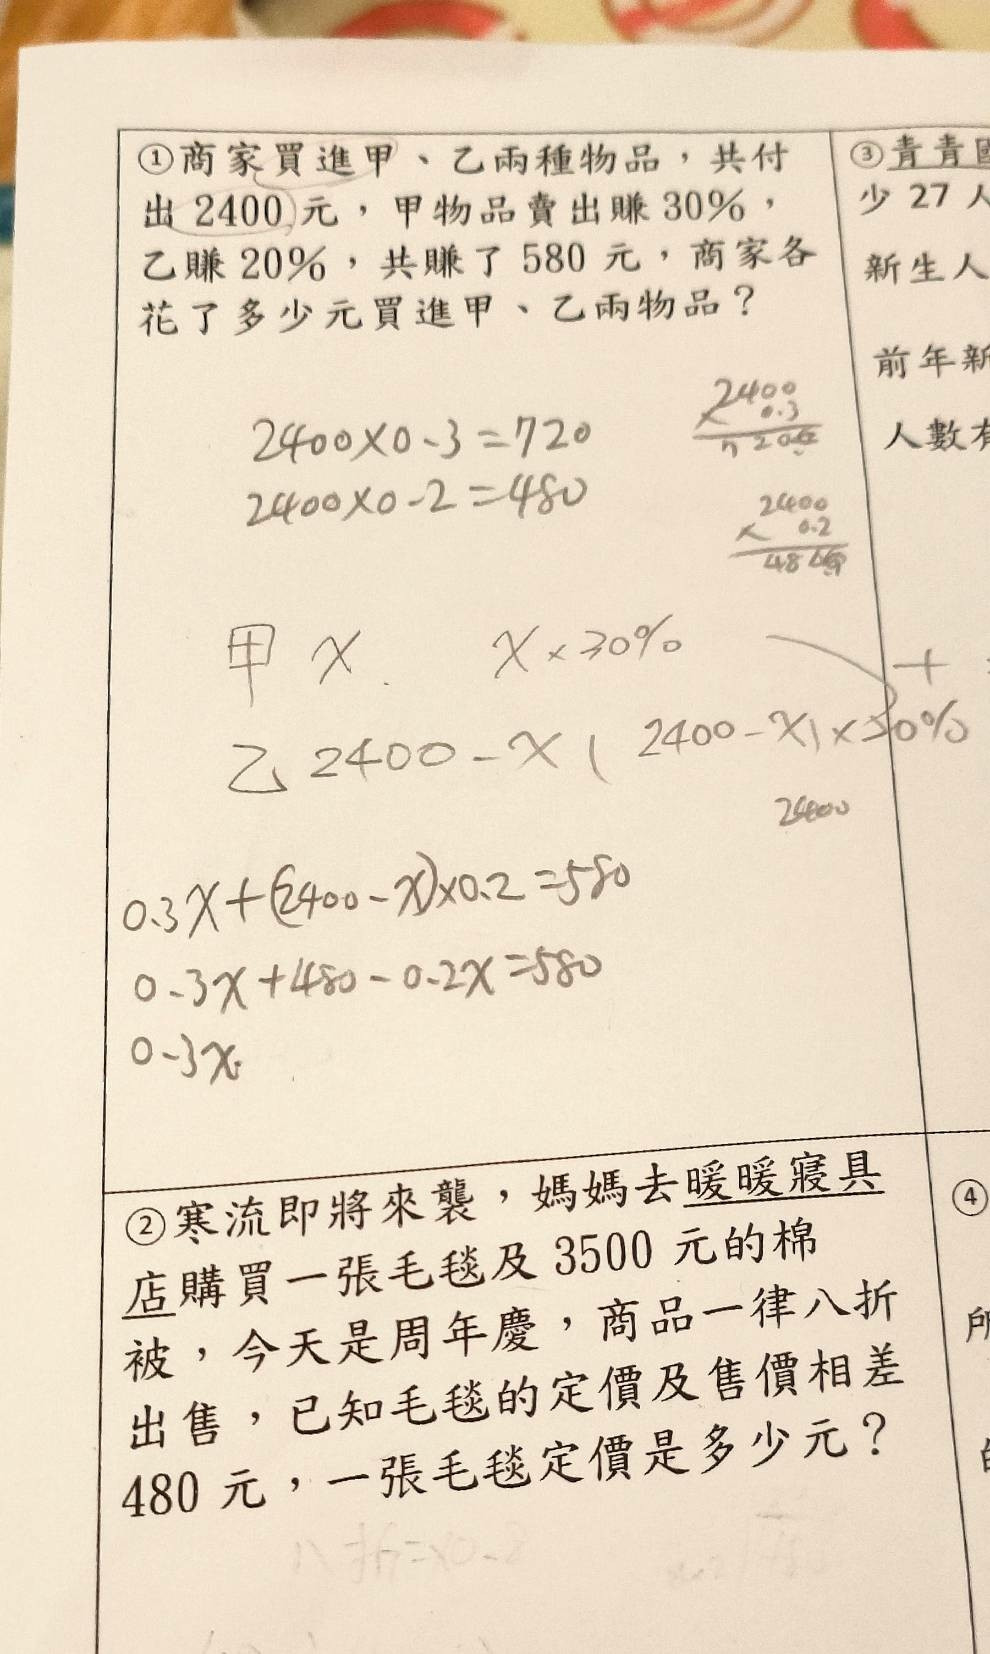 ①商家買進甲、乙兩種物品，共付
出 2400 元，甲物品賣出賺 30%，
乙賺 20%，共賺了 580 元，商家各
花了多少元買進甲、乙兩物品？
2400×0.3=720
2400×0.2=480
2400
0.3
2400
× 0.2
甲 x x×30%
+
乙 2400-x (2400-x)×20%
0.3x+(2400-x)×0.2=580
0.3x+480-0.2x=580
0.3x
②寒流即將來襲，媽媽去暖暖寢具
店購買一張毛毯及 3500 元的棉
被，今天是周年慶，商品一律八折
出售，已知毛毯的定價及售價相差
480 元，一張毛毯定價是多少元？
八折=×0.8
③青青
少 27 人
新生人
前年新
人數有
④
所